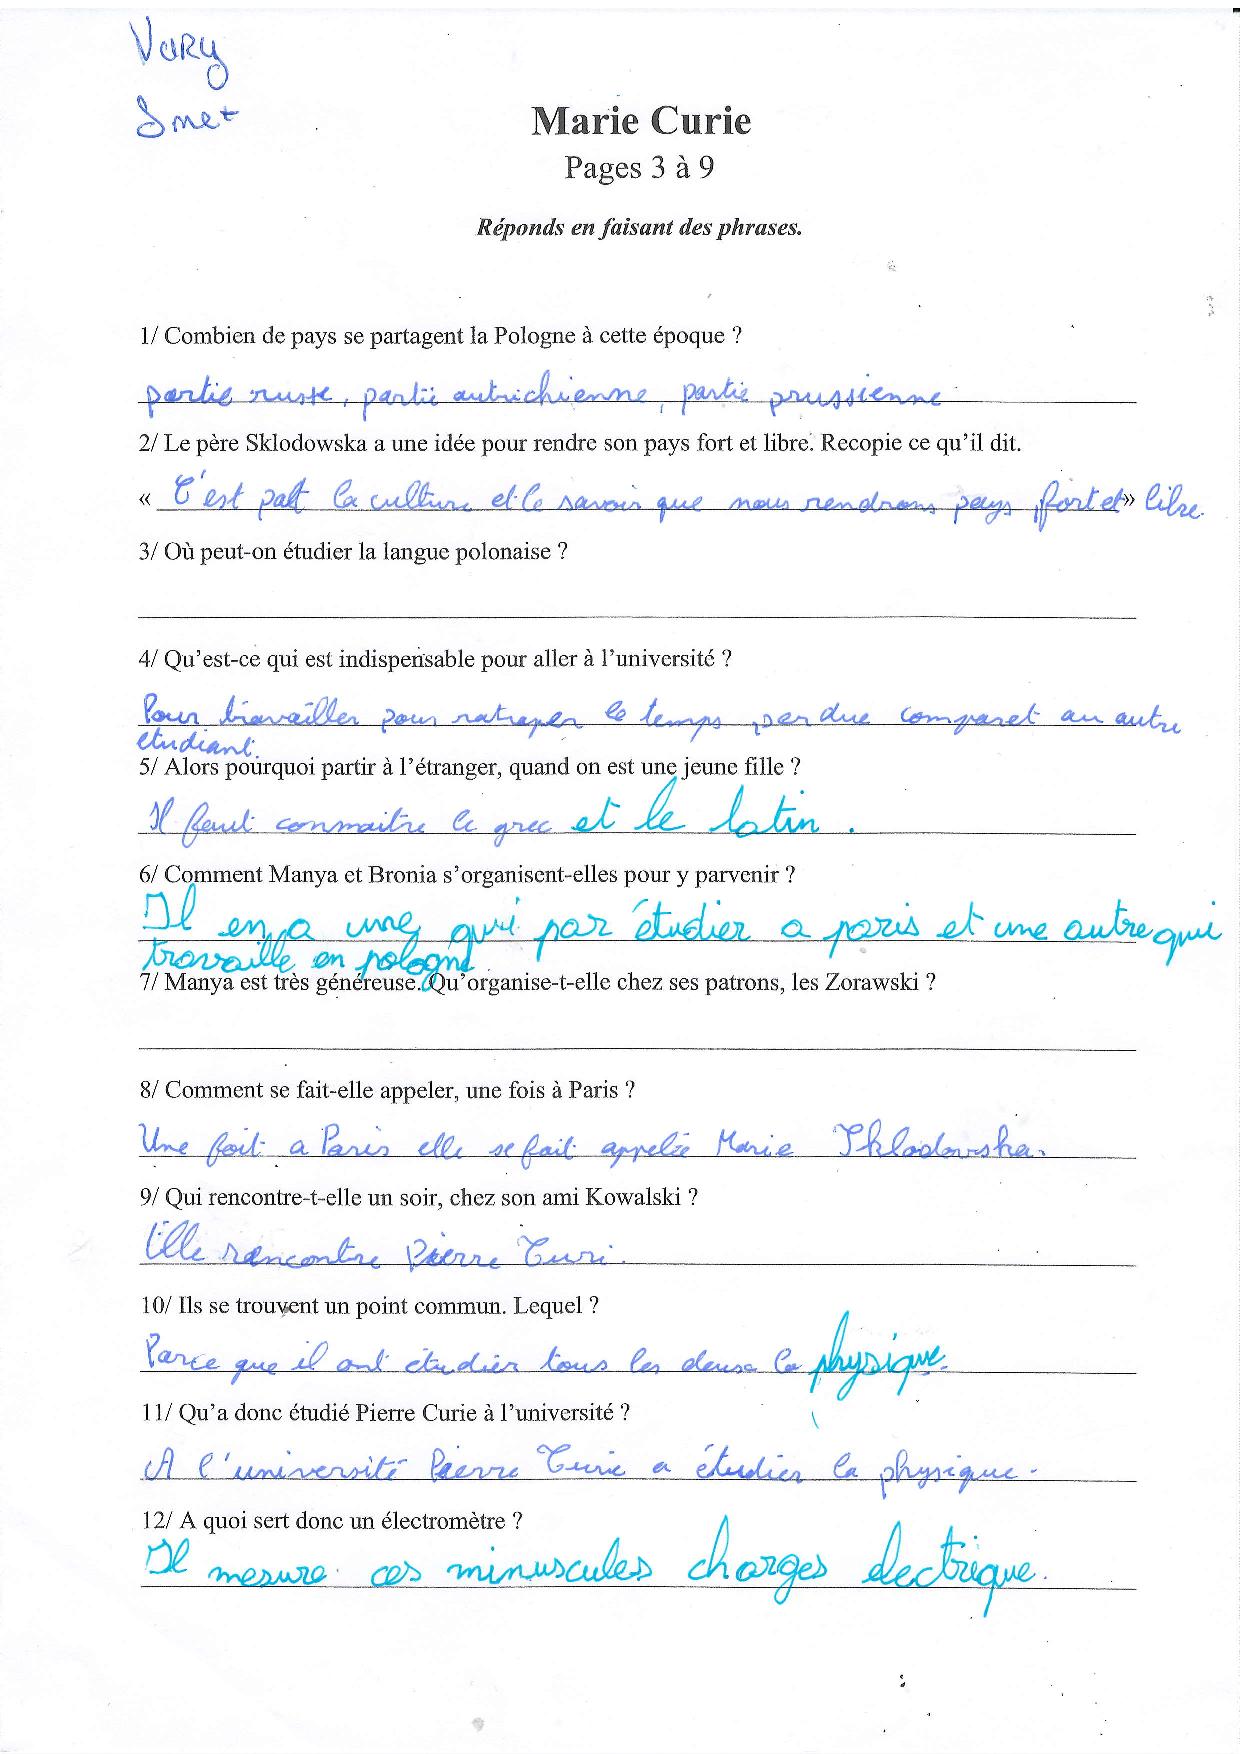 Vary
Smet
Marie Curie
Pages 3 à 9
Réponds en faisant des phrases.
1/ Combien de pays se partagent la Pologne à cette époque ?
partie russe, partie autrichienne, partie prussienne
2/ Le père Sklodowska a une idée pour rendre son pays fort et libre. Recopie ce qu'il dit.
« C'est part la culture et le savoir que nous rendrons pays fort et» libre.
3/ Où peut-on étudier la langue polonaise ?
4/ Qu'est-ce qui est indispensable pour aller à l'université ?
Pour travailler pour ratraper le temps perdue comparet au autre
etudiant.
5/ Alors pourquoi partir à l'étranger, quand on est une jeune fille ?
Il faut connaitre le grec et le latin.
6/ Comment Manya et Bronia s'organisent-elles pour y parvenir ?
Il en a une qui par étudier a paris et une autre qui
travaille en pologne
7/ Manya est très généreuse. Qu'organise-t-elle chez ses patrons, les Zorawski ?
8/ Comment se fait-elle appeler, une fois à Paris ?
Une foit a Paris elle se fait appelée Marie Skladowska.
9/ Qui rencontre-t-elle un soir, chez son ami Kowalski ?
Elle rencontre Pierre Curi.
10/ Ils se trouvent un point commun. Lequel ?
Parce que il ont étudier tous les deuse la physique.
11/ Qu'a donc étudié Pierre Curie à l'université ?
A l'université Pierre Curie a étudier la physique.
12/ A quoi sert donc un électromètre ?
Il mesure ces minuscules charges electrique.